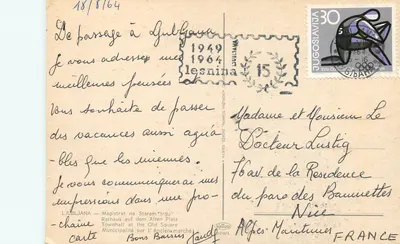 18/8/64
De passage à Ljubljana
je vous adresse mes
meilleures pensées
Vous souhaite de passer
des vacances aussi agréa-
bles que les miennes.
Je vous communiquerai mes
impressions dans une pro-
chaine
carte
Bons Baisers
LJUBLJANA — Magistrat na Starem trgu
Rathaus auf dem Alten Platz
Townhall at the Old Square
1949
1964
lesnina
15
JUGOSLAVIJA
30
GIBANJ
Madame et Monsieur Le
Docteur Lustig
76 av. de la Residence
du parc des Baumettes
Nice
Alpes Maritimes
FRANCE